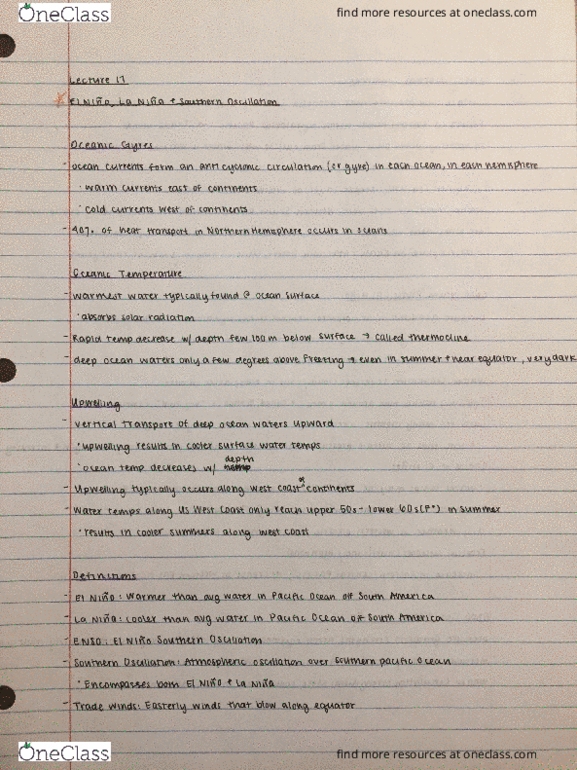 OneClass
find more resources at oneclass.com
Lecture 17
El Niño, La Niña + Southern Oscillation
Oceanic Gyres
- ocean currents form an anti cyclonic circulation (or gyre) in each ocean, in each hemisphere
· warm currents east of continents
· cold currents west of continents
- 40% of heat transport in Northern Hemisphere occurs in oceans
Oceanic Temperature
- warmest water typically found @ ocean surface
· absorbs solar radiation
- Rapid temp decrease w/ depth few 100m below surface → called thermocline
- deep ocean waters only a few degrees above freezing → even in summer + near equator, very dark
Upwelling
- vertical transport of deep ocean waters upward
· upwelling results in cooler surface water temps
· ocean temp decreases w/ depth
- Upwelling typically occurs along west coast of continents
- Water temps along US West Coast only reach upper 50s - lower 60s (F°) in summer
· results in cooler summers along west coast
Definitions
- El Niño: Warmer than avg water in Pacific Ocean off South America
- La Niña: cooler than avg water in Pacific Ocean off South America
- ENSO: El Niño Southern Oscillation
- Southern Oscillation: Atmospheric oscillation over southern pacific ocean
· Encompasses both El Niño + La Niña
- Trade Winds: Easterly winds that blow along equator
OneClass
find more resources at oneclass.com